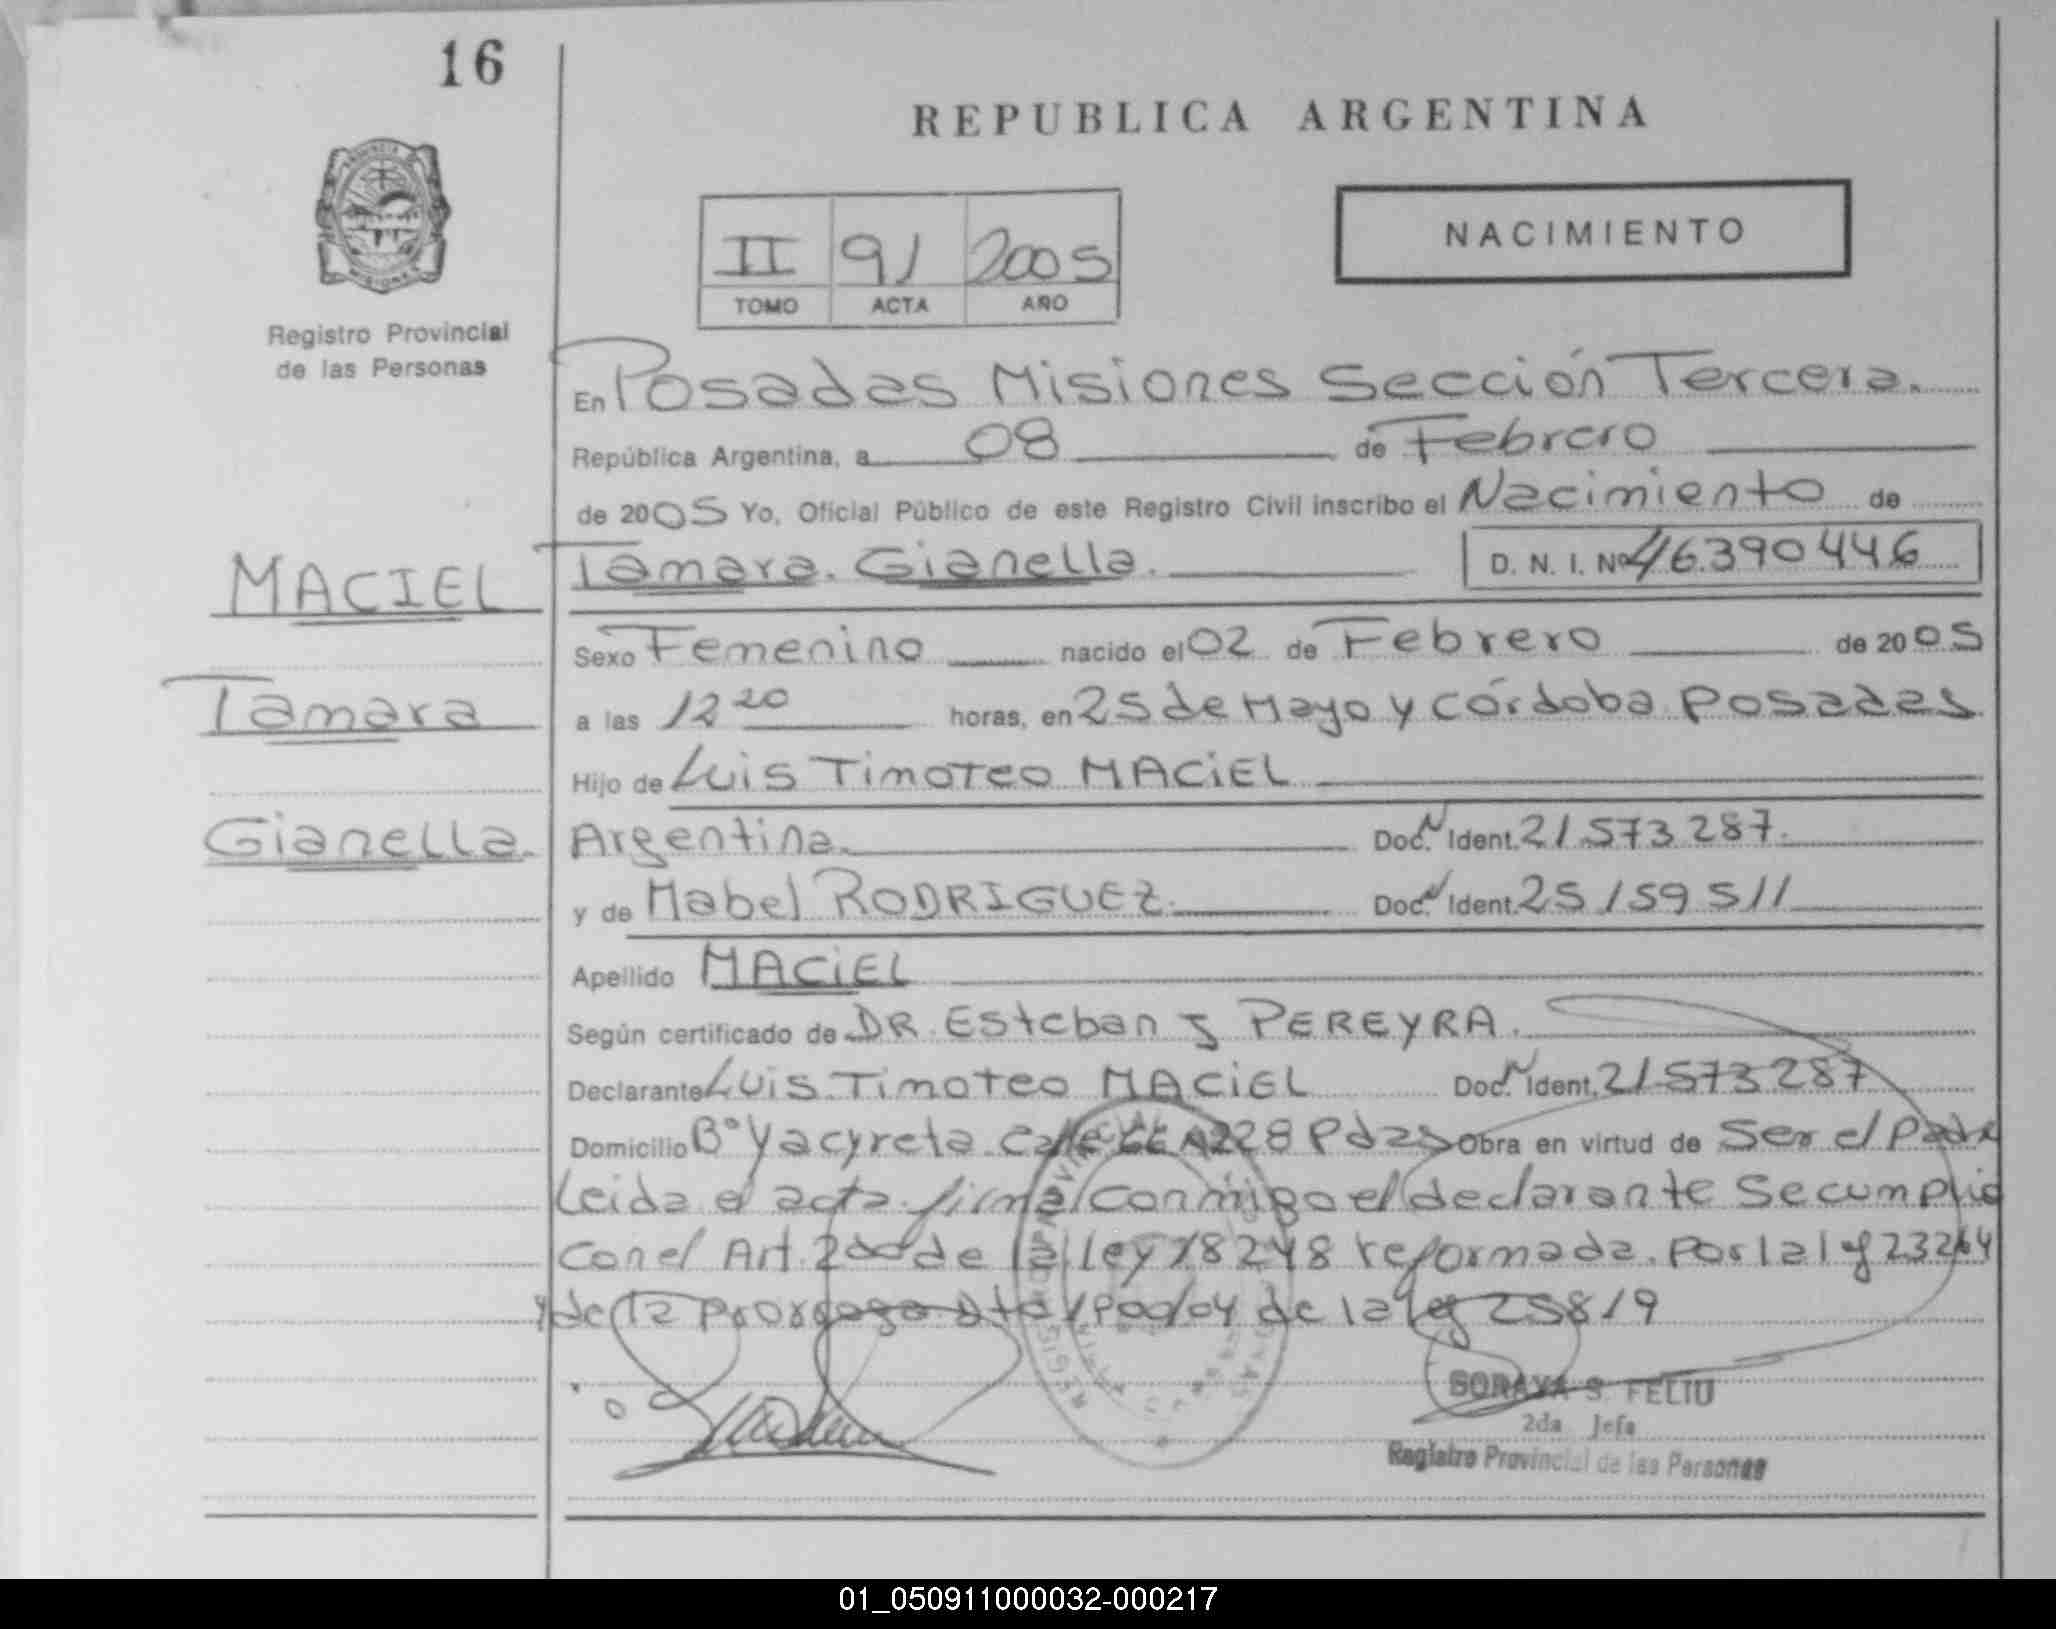 16
REPUBLICA ARGENTINA
NACIMIENTO
II 91 2005
TOMO ACTA AÑO
Registro Provincial
de las Personas
En Posadas Misiones Sección Tercera.
República Argentina, a 08 de Febrero
de 2005 Yo, Oficial Público de este Registro Civil inscribo el Nacimiento de
MACIEL Tamara. Gianella. D. N. I. Nº 46390446
Sexo Femenino nacido el 02 de Febrero de 2005
Tamara a las 12 20 horas, en 25 de Mayo y Córdoba Posadas
Hijo de Luis Timoteo MACIEL
Gianella. Argentina. Doc. N Ident. 21.573.287.
y de Mabel RODRIGUEZ. Doc. N Ident. 25 159 511
Apellido MACIEL
Según certificado de DR. Esteban J PEREYRA.
Declarante Luis Timoteo MACIEL Doc. N Ident. 21573287
Domicilio Bº Yacyreta Calle 228 Pdas Obra en virtud de Ser el Padre
Leida el acta firma conmigo el declarante Se cumplio
con el Art. 2do de la ley 18248 reformada. Por la ley 23264
y de la prorroga 04 de la ley 25819
SORAYA S. FELIU
2da. Jefa
Registro Provincial de las Personas
01_050911000032-000217